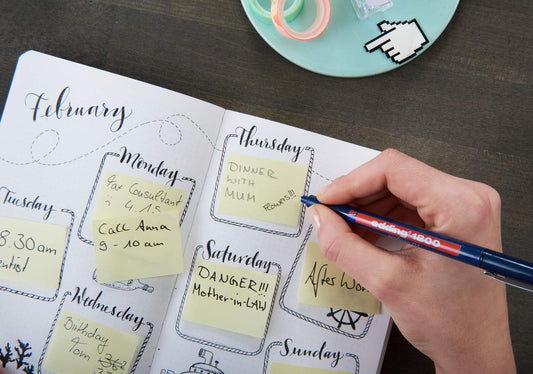 February
Monday
Tax Consultant
4.15
Call Anna
9-10 am
Tuesday
8.30am
Wednesday
Birthday
4pm
Thursday
DINNER
WITH
MUM
Saturday
DANGER!!!
Mother-in-LAW
After Wor
Sunday
edding 1800